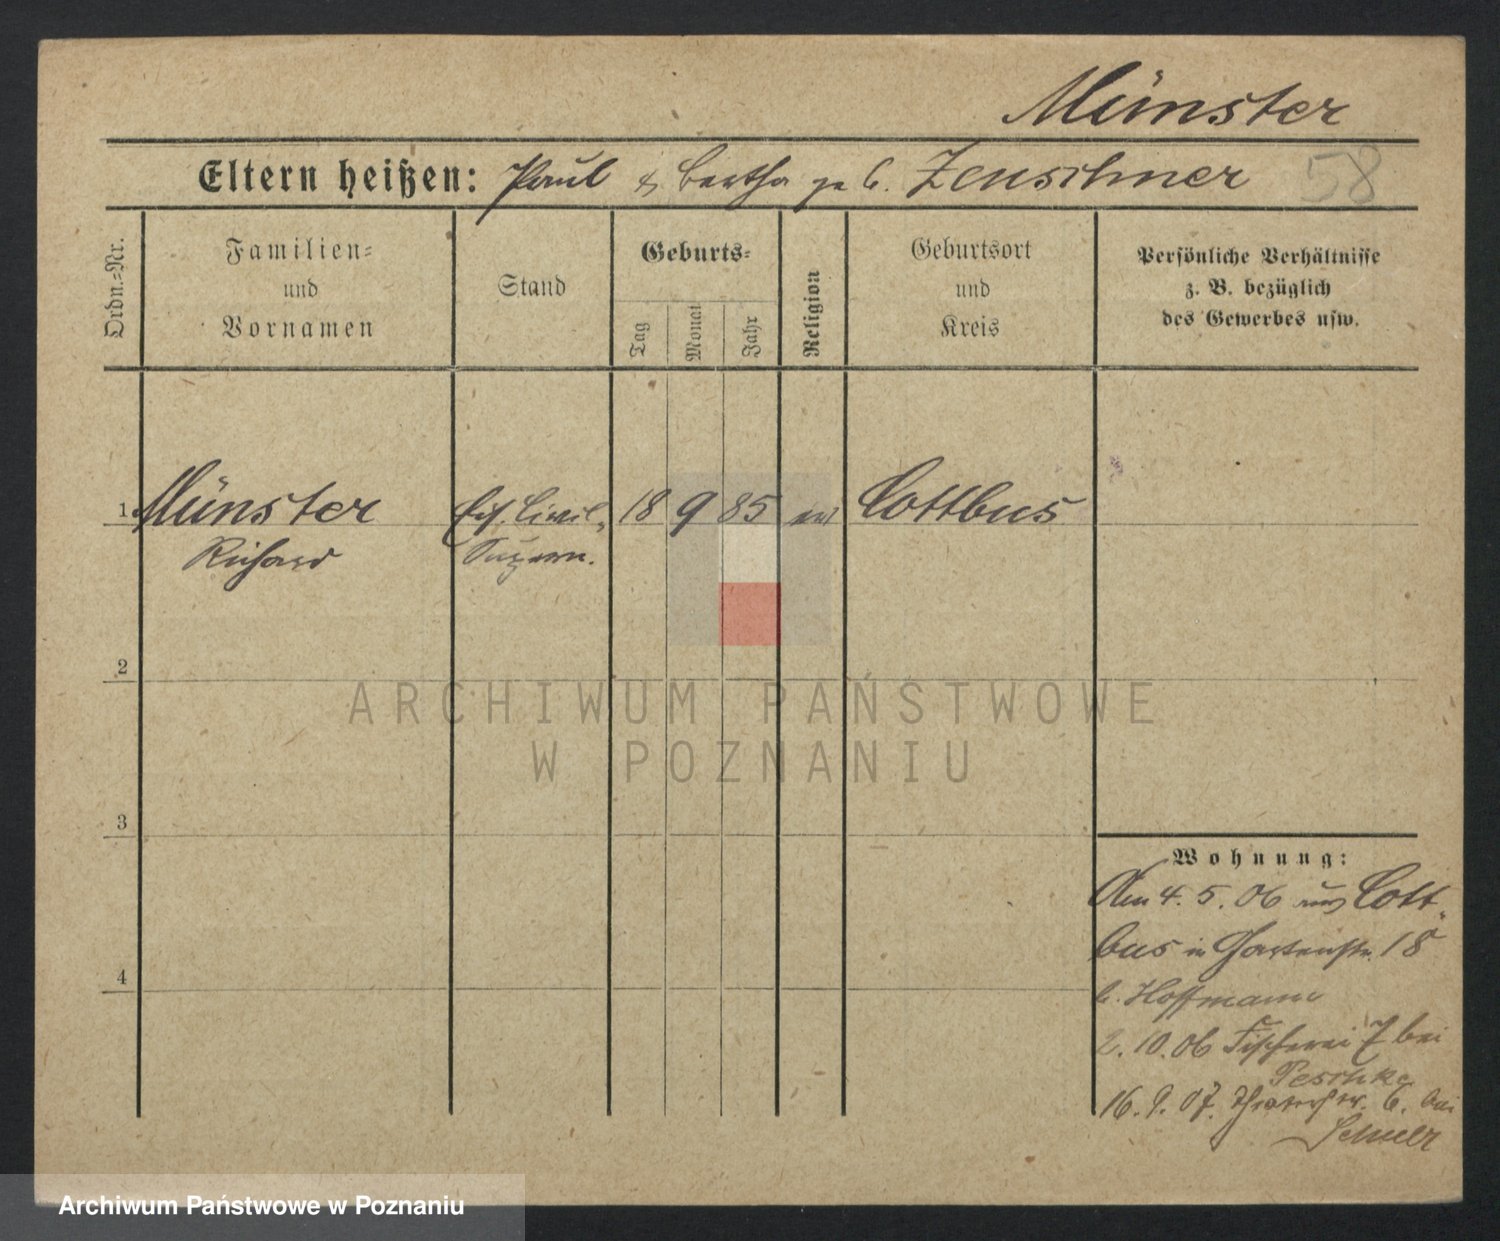 Münster
Eltern heißen: Paul & Bertha geb. Zeuschner 58
Ordn.-Nr.
Familien-
und
Vornamen
Stand
Geburts-
Tag
Monat
Jahr
Religion
Geburtsort
und
Kreis
Persönliche Verhältnisse
z. B. bezüglich
des Gewerbes usw.
1 Münster Eis. Civil- 18 9 85 ev Cottbus
Richard Supern.
2
3
4
Wohnung:
Am 4. 5. 06 aus Cott-
bus in Gartenstr. 18
b. Hoffmann
2. 10. 06 Fischerei 7 bei
Peschke
16. 9. 07. Theaterstr. 6. bei
ARCHIWUM PAŃSTWOWE
W POZNANIU
Archiwum Państwowe w Poznaniu